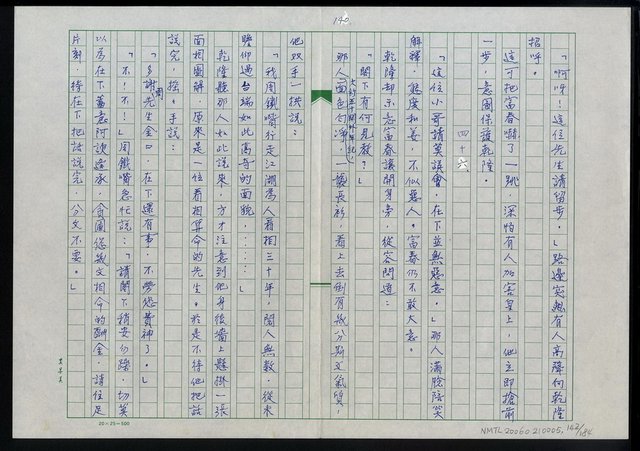 140.
「啊呀！這位先生請留步。」路邊突然有人高聲向乾隆
招呼。
這可把富春嚇了一跳，深怕有人加害皇上，他立即搶前
一步，意圖保護乾隆。
四十六、
「這位小哥請莫誤會，在下並無惡意。」那人滿臉陪笑
解釋，態度和善，不似惡人。富春仍不敢大意。
乾隆却示意富春讓開身旁，從容問道：
「閣下有何見教？」
那人面色白凈，一襲長衫，看上去倒有幾分斯文氣質，
他双手一拱說：
「我周鐵嘴行走江湖為人看相三十年，閱人無數，從未
瞻仰過台端如此高奇的面貌，……」
乾隆聽那人如此說來，方才注意到他身後牆上懸掛一張
面相圖解，原來是一位看相算命的先生。於是不待他把話
說完，搖手說：
「多謝周先生金口，在下還有事，不勞您費神了。」
「不！不！」周鐵嘴急忙說：「請閣下稍安勿躁，切莫
以為在下蓄意阿諛逢承，貪圖您幾文相命的酬金，請住足
片刻，待在下把話說完，分文不要。」
20×25=500
NMTL20060210005, 142/184